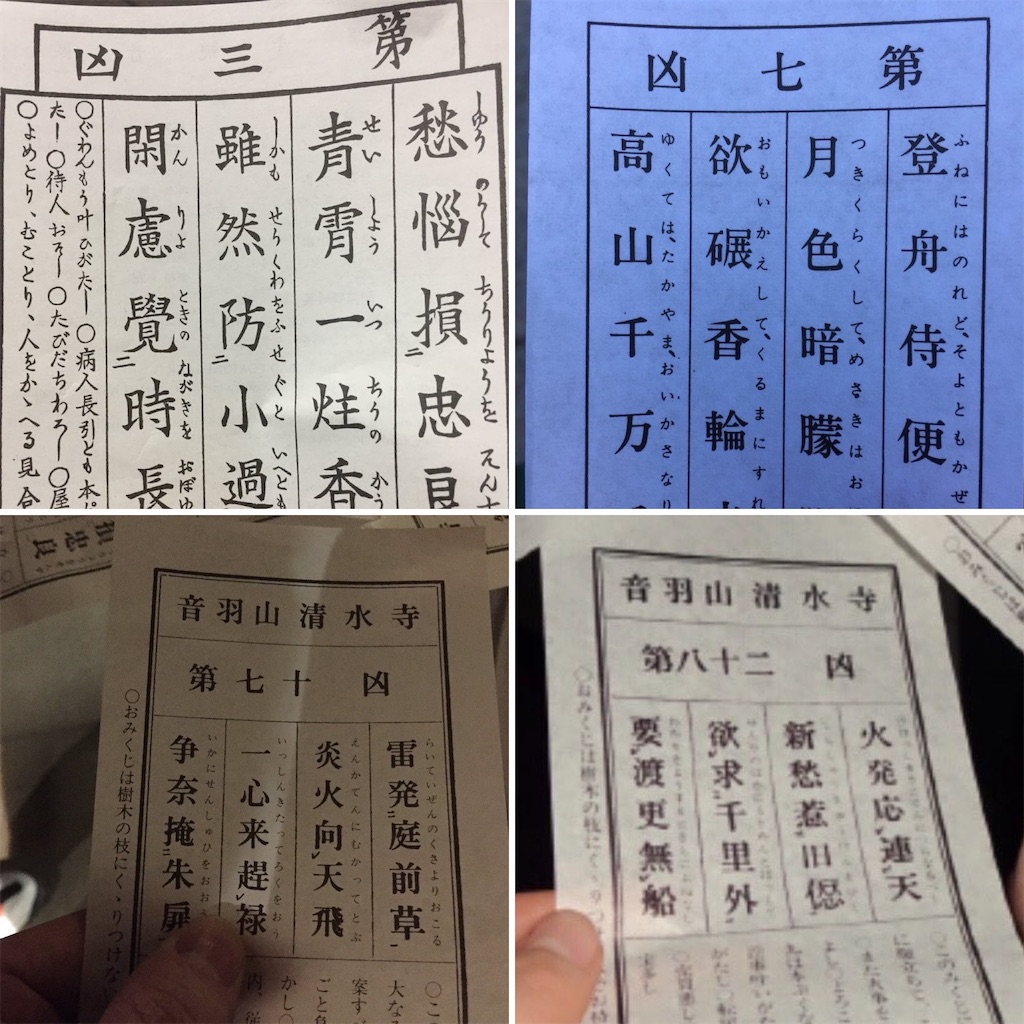 第三凶
しゆうのうして ちうりようを
愁悩損忠良
せいしよう いつちうの かう
青霄一炷香
しかも せうくわをふせぐと いへども
雖然防小過
かんりよ ときの ながきを おぼゆ
閑慮覺時長
○ぐわんもう叶ひがたし ○病人長引とも本
たし ○待人おそし ○たびだちわろし ○屋
○よめとり、むことり、人をかゝへる見合
第七凶
ふねにはのれど、そよともかぜ
登舟侍便
つきくらくして、めさきはお
月色暗朦
おもいかえして、くるまにすれ
欲碾香輪
ゆくては、たかやま、おいかさなり
高山千万
音羽山清水寺
第七十 凶
らいていぜんのくさよりおこる
雷発庭前草
えんかてんにむかってとぶ
炎火向天飛
いっしんきたってろくをおう
一心来趕禄
いかにせんしゅひをおおう
争奈掩朱扉
○おみくじは樹木の枝にくゝりつけない
○この
大なる
案ず
ごと
かし○
内、従
音羽山清水寺
第八十二 凶
火発応連天
新愁惹旧愆
欲求千里外
要渡更無船
○おみくじは樹木の枝にくゝりつ